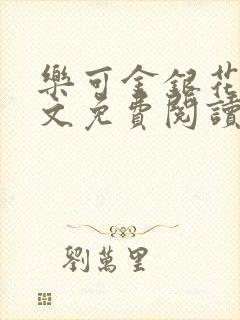 樂可金銀花
文免費閱讀
劉萬里